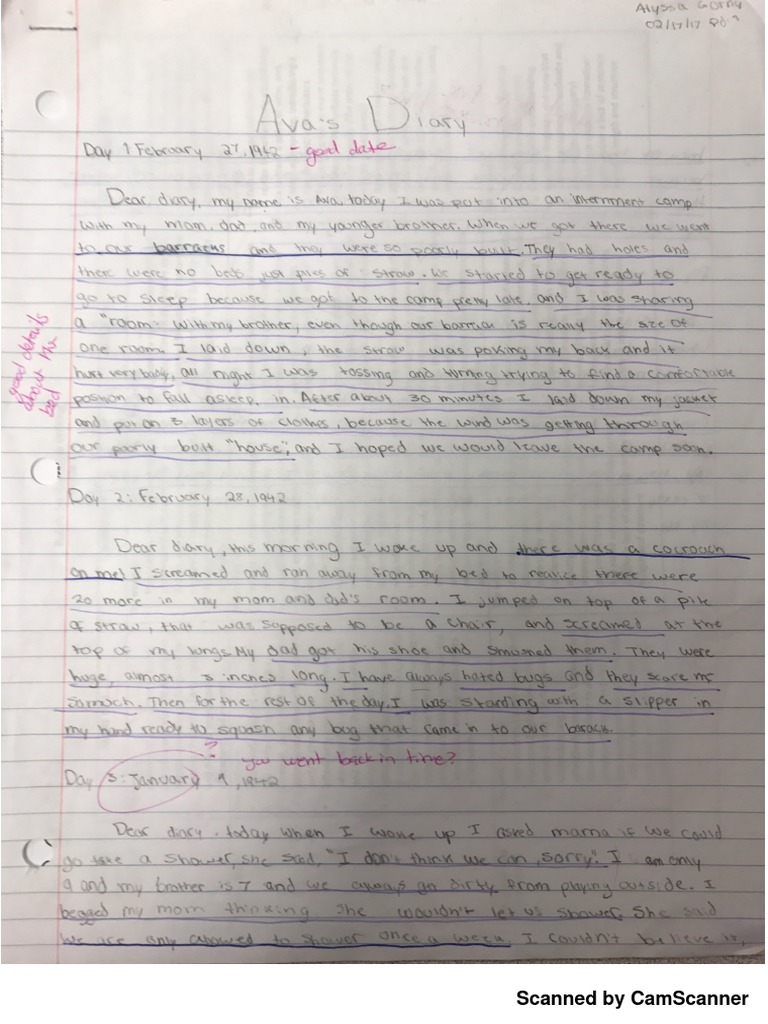 Alyssa
02/17/17
Ava's Diary
Day 1 February 27, 1942 - good date
Dear diary, my name is Ava, today I was put into an internment camp
with my mom, dad, and my younger brother. When we got there we went
to our barracks and they were so poorly built. They had holes and
there were no beds just piles of straw. We started to get ready to
go to sleep because we got to the camp pretty late, and I was sharing
a "room" with my brother, even though our barrick is really the size of
one room. I laid down, the straw was poking my back and it
hurt very badly, all night I was tossing and turning trying to find a comfortable
position to fall asleep, in. After about 30 minutes I laid down my jacket
and put on 3 layers of clothes, because the wind was getting through
our poorly built "house", and I hoped we would leave the camp soon.
good details
about the
bed
Day 2: February 28, 1942
Dear diary, this morning I woke up and there was a cocroach
on me! I screamed and ran away from my bed to realize there were
20 more in my mom and dad's room. I jumped on top of a pile
of straw, that was supposed to be a chair, and screamed at the
top of my lungs. My dad got his shoe and smushed them. They were
huge, almost 3 inches long. I have always hated bugs and they scare me
somuch. Then for the rest of the day, I was standing with a slipper in
my hand ready to squash any bug that came in to our barack.
? you went back in time?
Day 3: January 9, 1942
Dear diary, today when I woke up I asked mama if we could
go take a shower, she said, "I don't think we can, sorry." I am only
9 and my brother is 7 and we always get dirty from playing outside. I
begged my mom thinking she wouldn't let us shower. She said
we are only allowed to shower once a week. I couldn't believe it,
Scanned by CamScanner